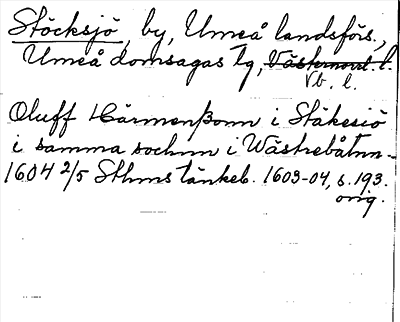 Stöcksjö, by, Umeå landsförs.,
Umeå domsagas tg, Västernorrl. l.
Vb. l.
Oluff Härmenßonn i Stäkesiö
i samma sochnn i Wästrebåtnn -
1604 2/5 Sthms tänkeb. 1603-04, s. 193.
orig.